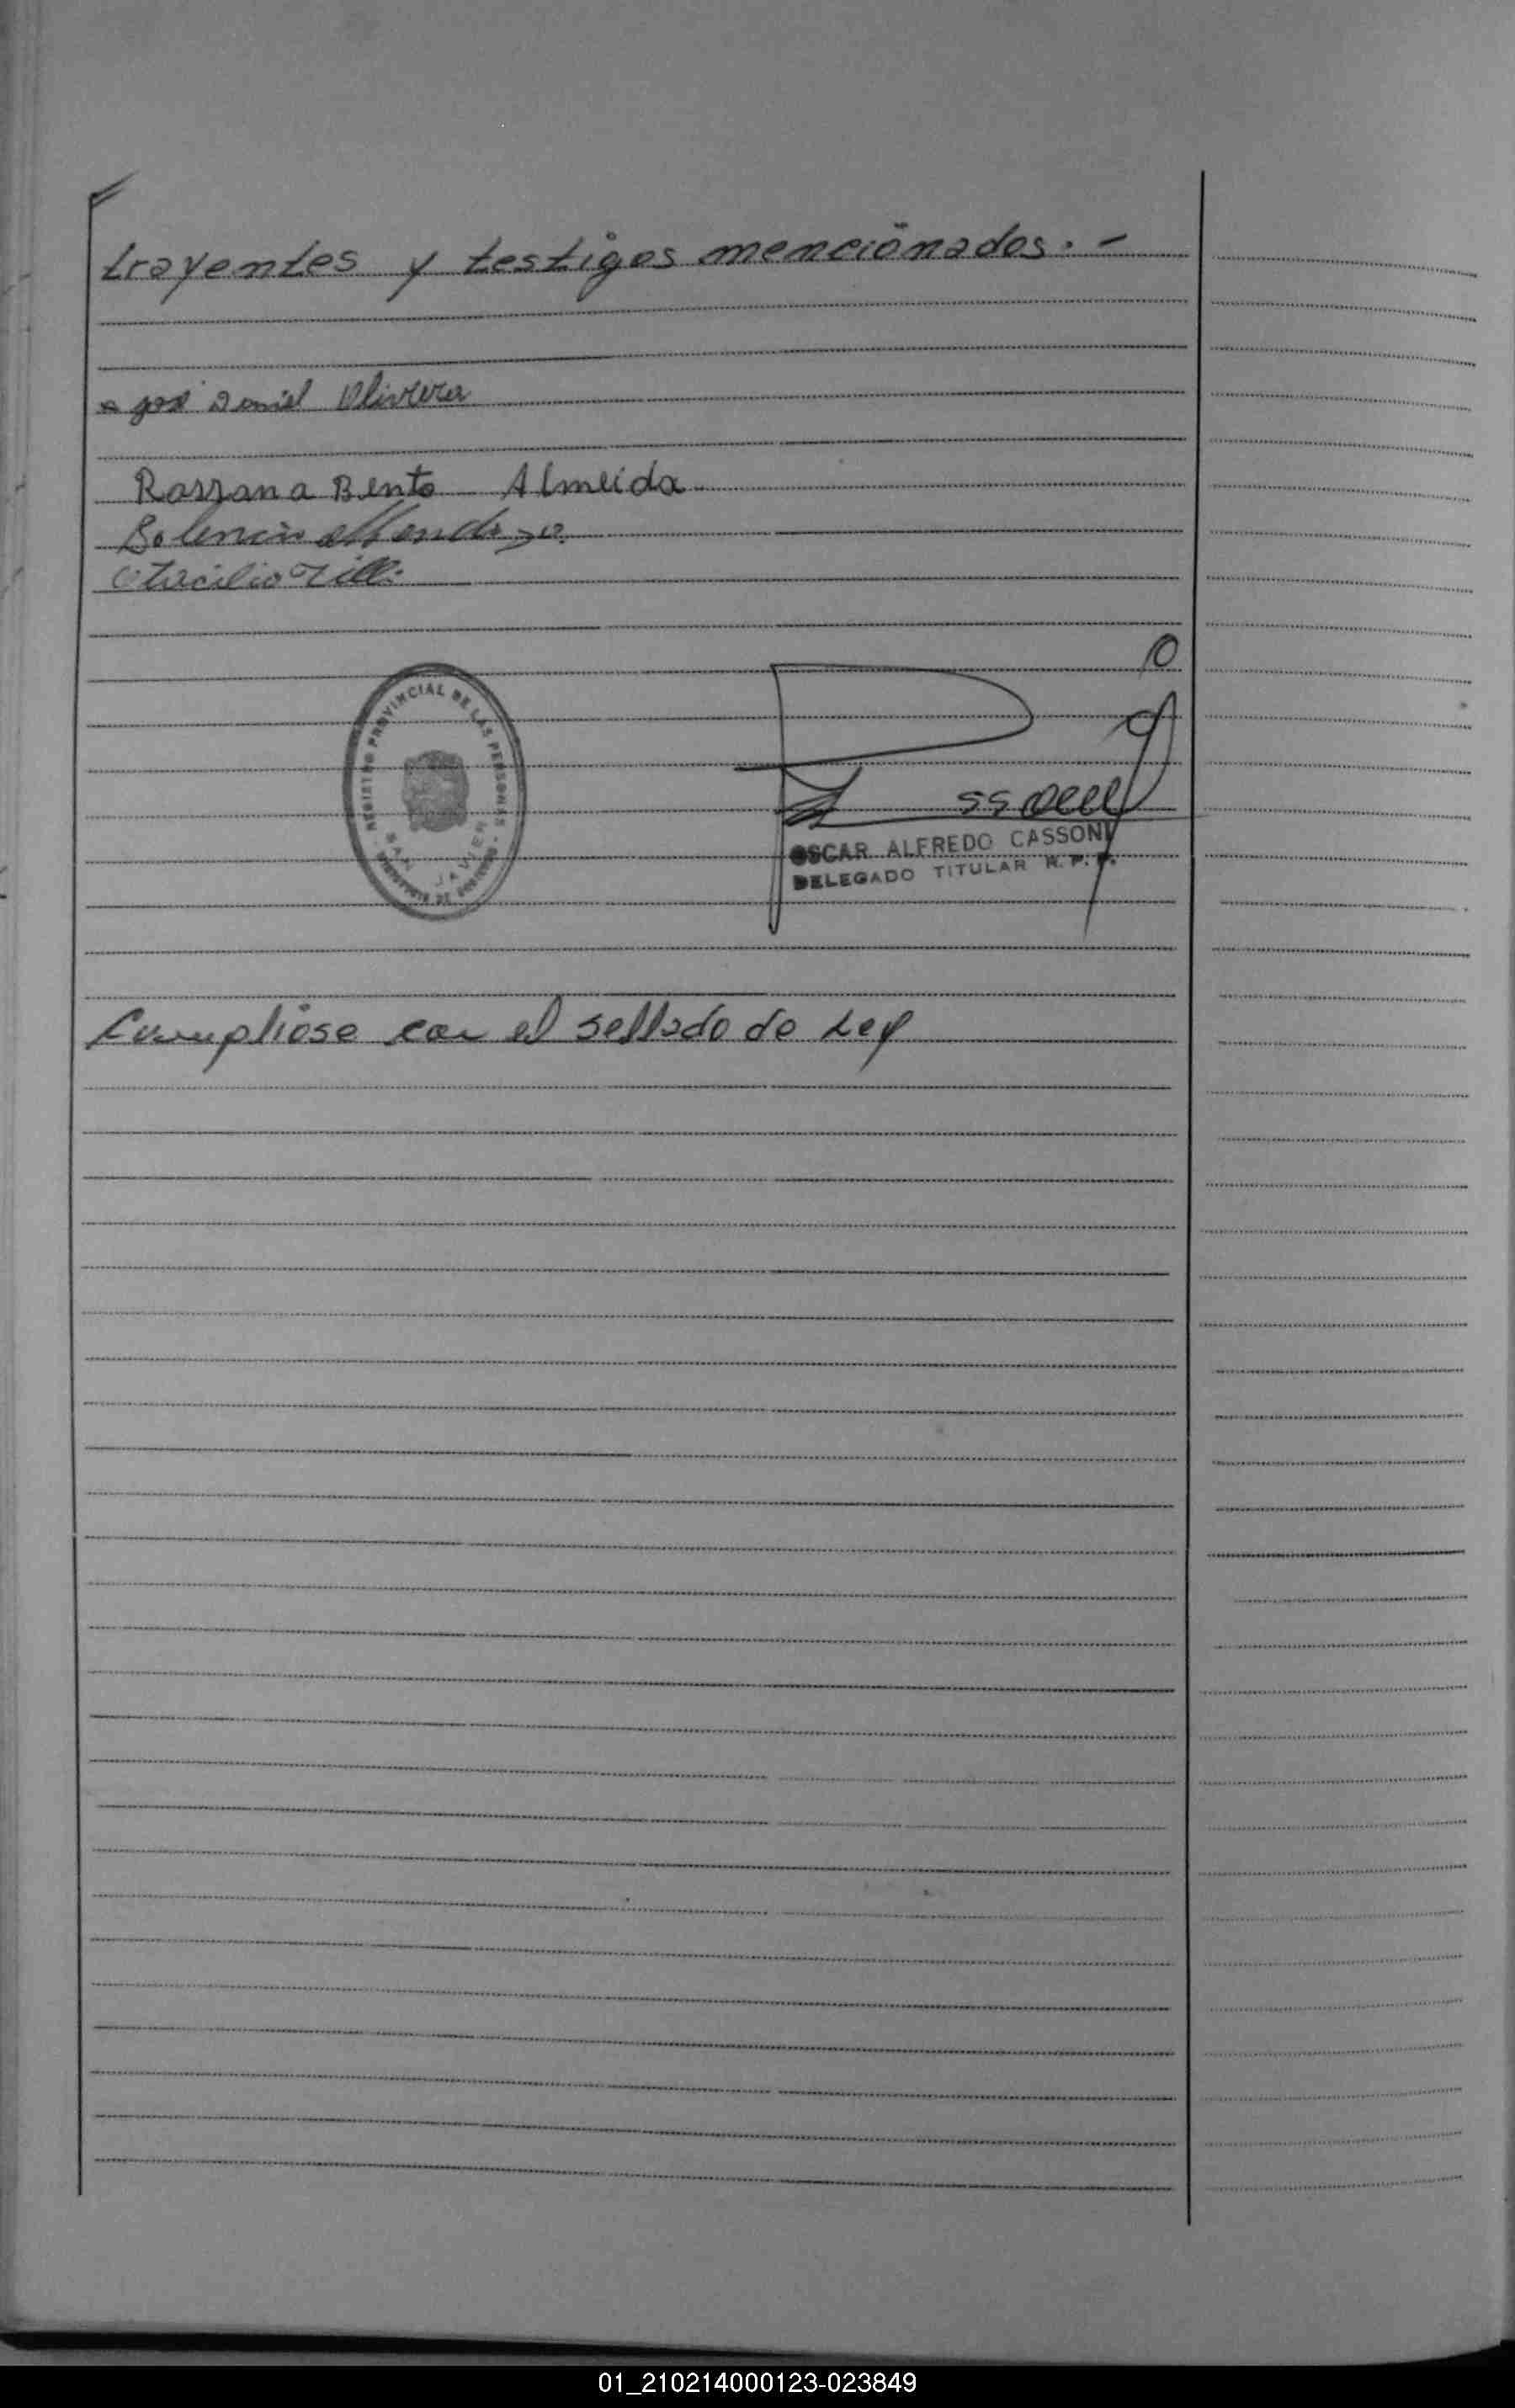 trayentes y testigos mencionados. -
José Daniel Olivera
Rossana Bento Almeida
Mendoza
Otacilio
REGISTRO PROVINCIAL DE LAS PERSONAS
SAN JAVIER
OSCAR ALFREDO CASSONI
DELEGADO TITULAR R. P. P.
Cumpliose con el sellado de Ley
01_210214000123-023849